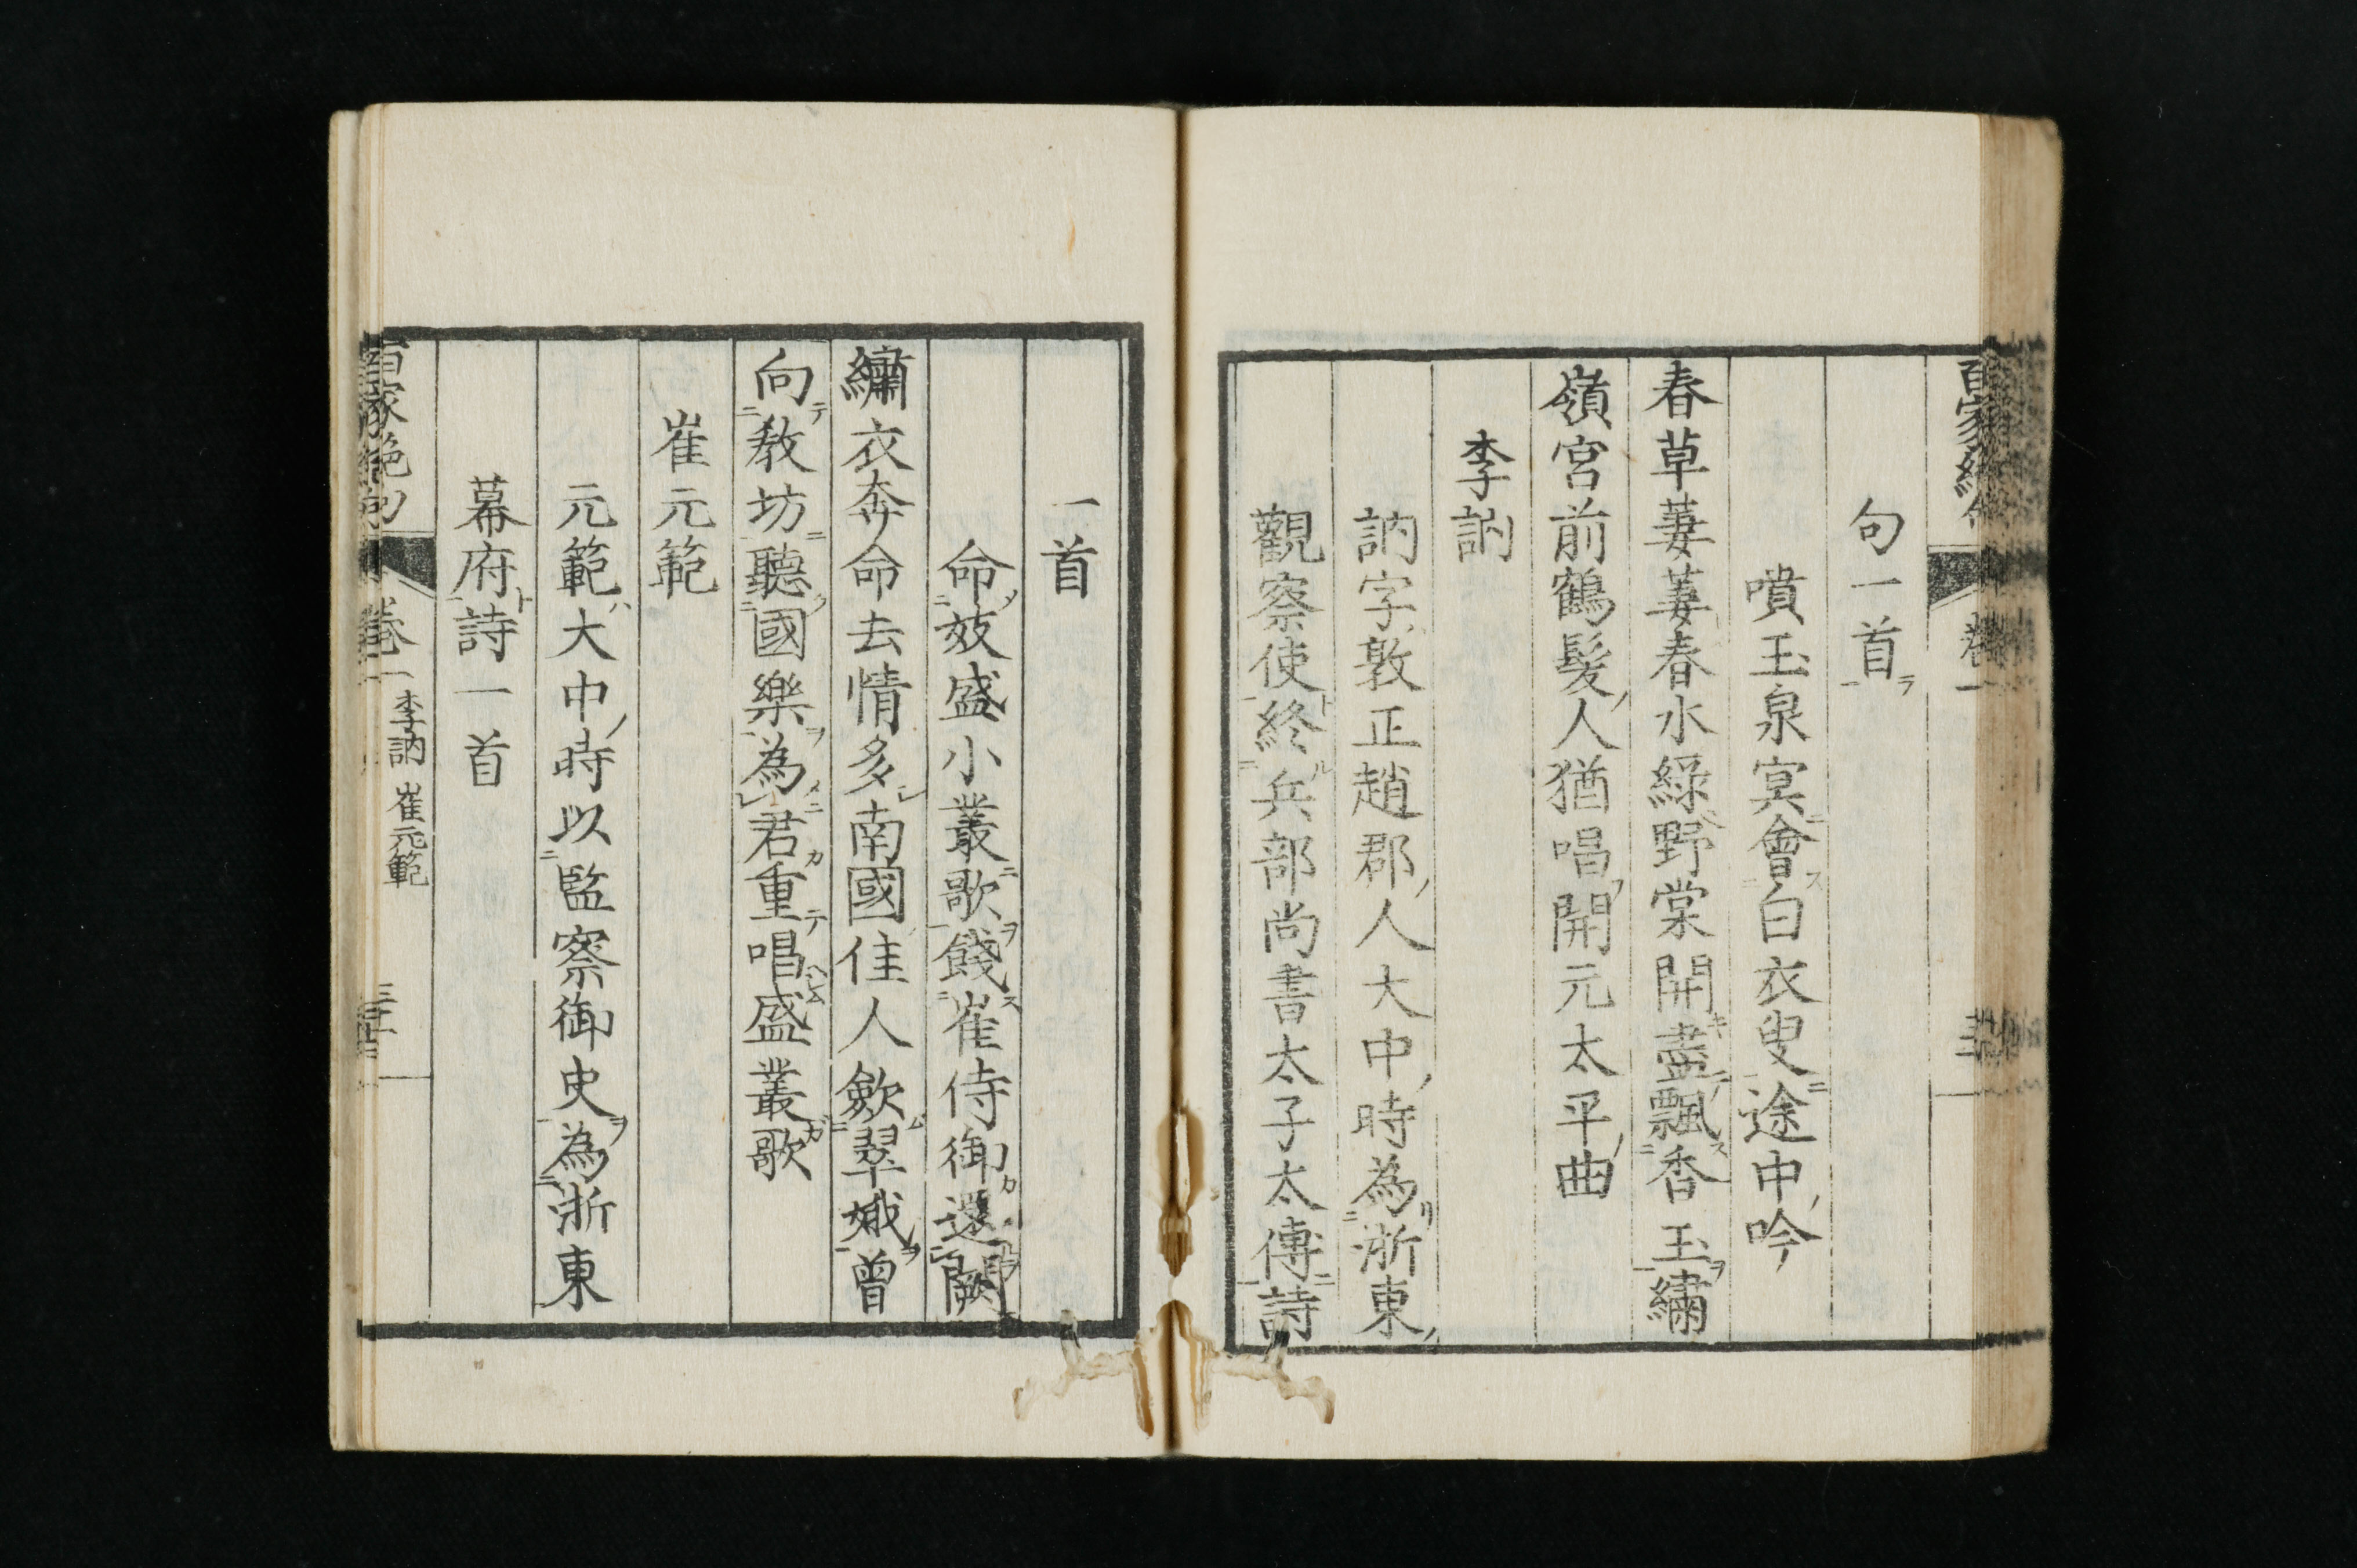 句一首
噴玉泉冥會白衣叟途中吟
春草萋萋春水緑野棠開盡飄香玉繡
嶺宮前鶴髪人猶唱開元太平曲
李訥
訥字敦正趙郡人大中時為浙東
觀察使終兵部尚書太子太傅詩
一首
命妓盛小叢歌餞崔侍御還闕
繡衣奔命去情多南國佳人歛翠娥曾
向教坊聽國樂為君重唱盛叢歌
崔元範
元範大中時以監察御史為浙東
幕府詩一首
百家絶句 卷一 李訥 崔元範